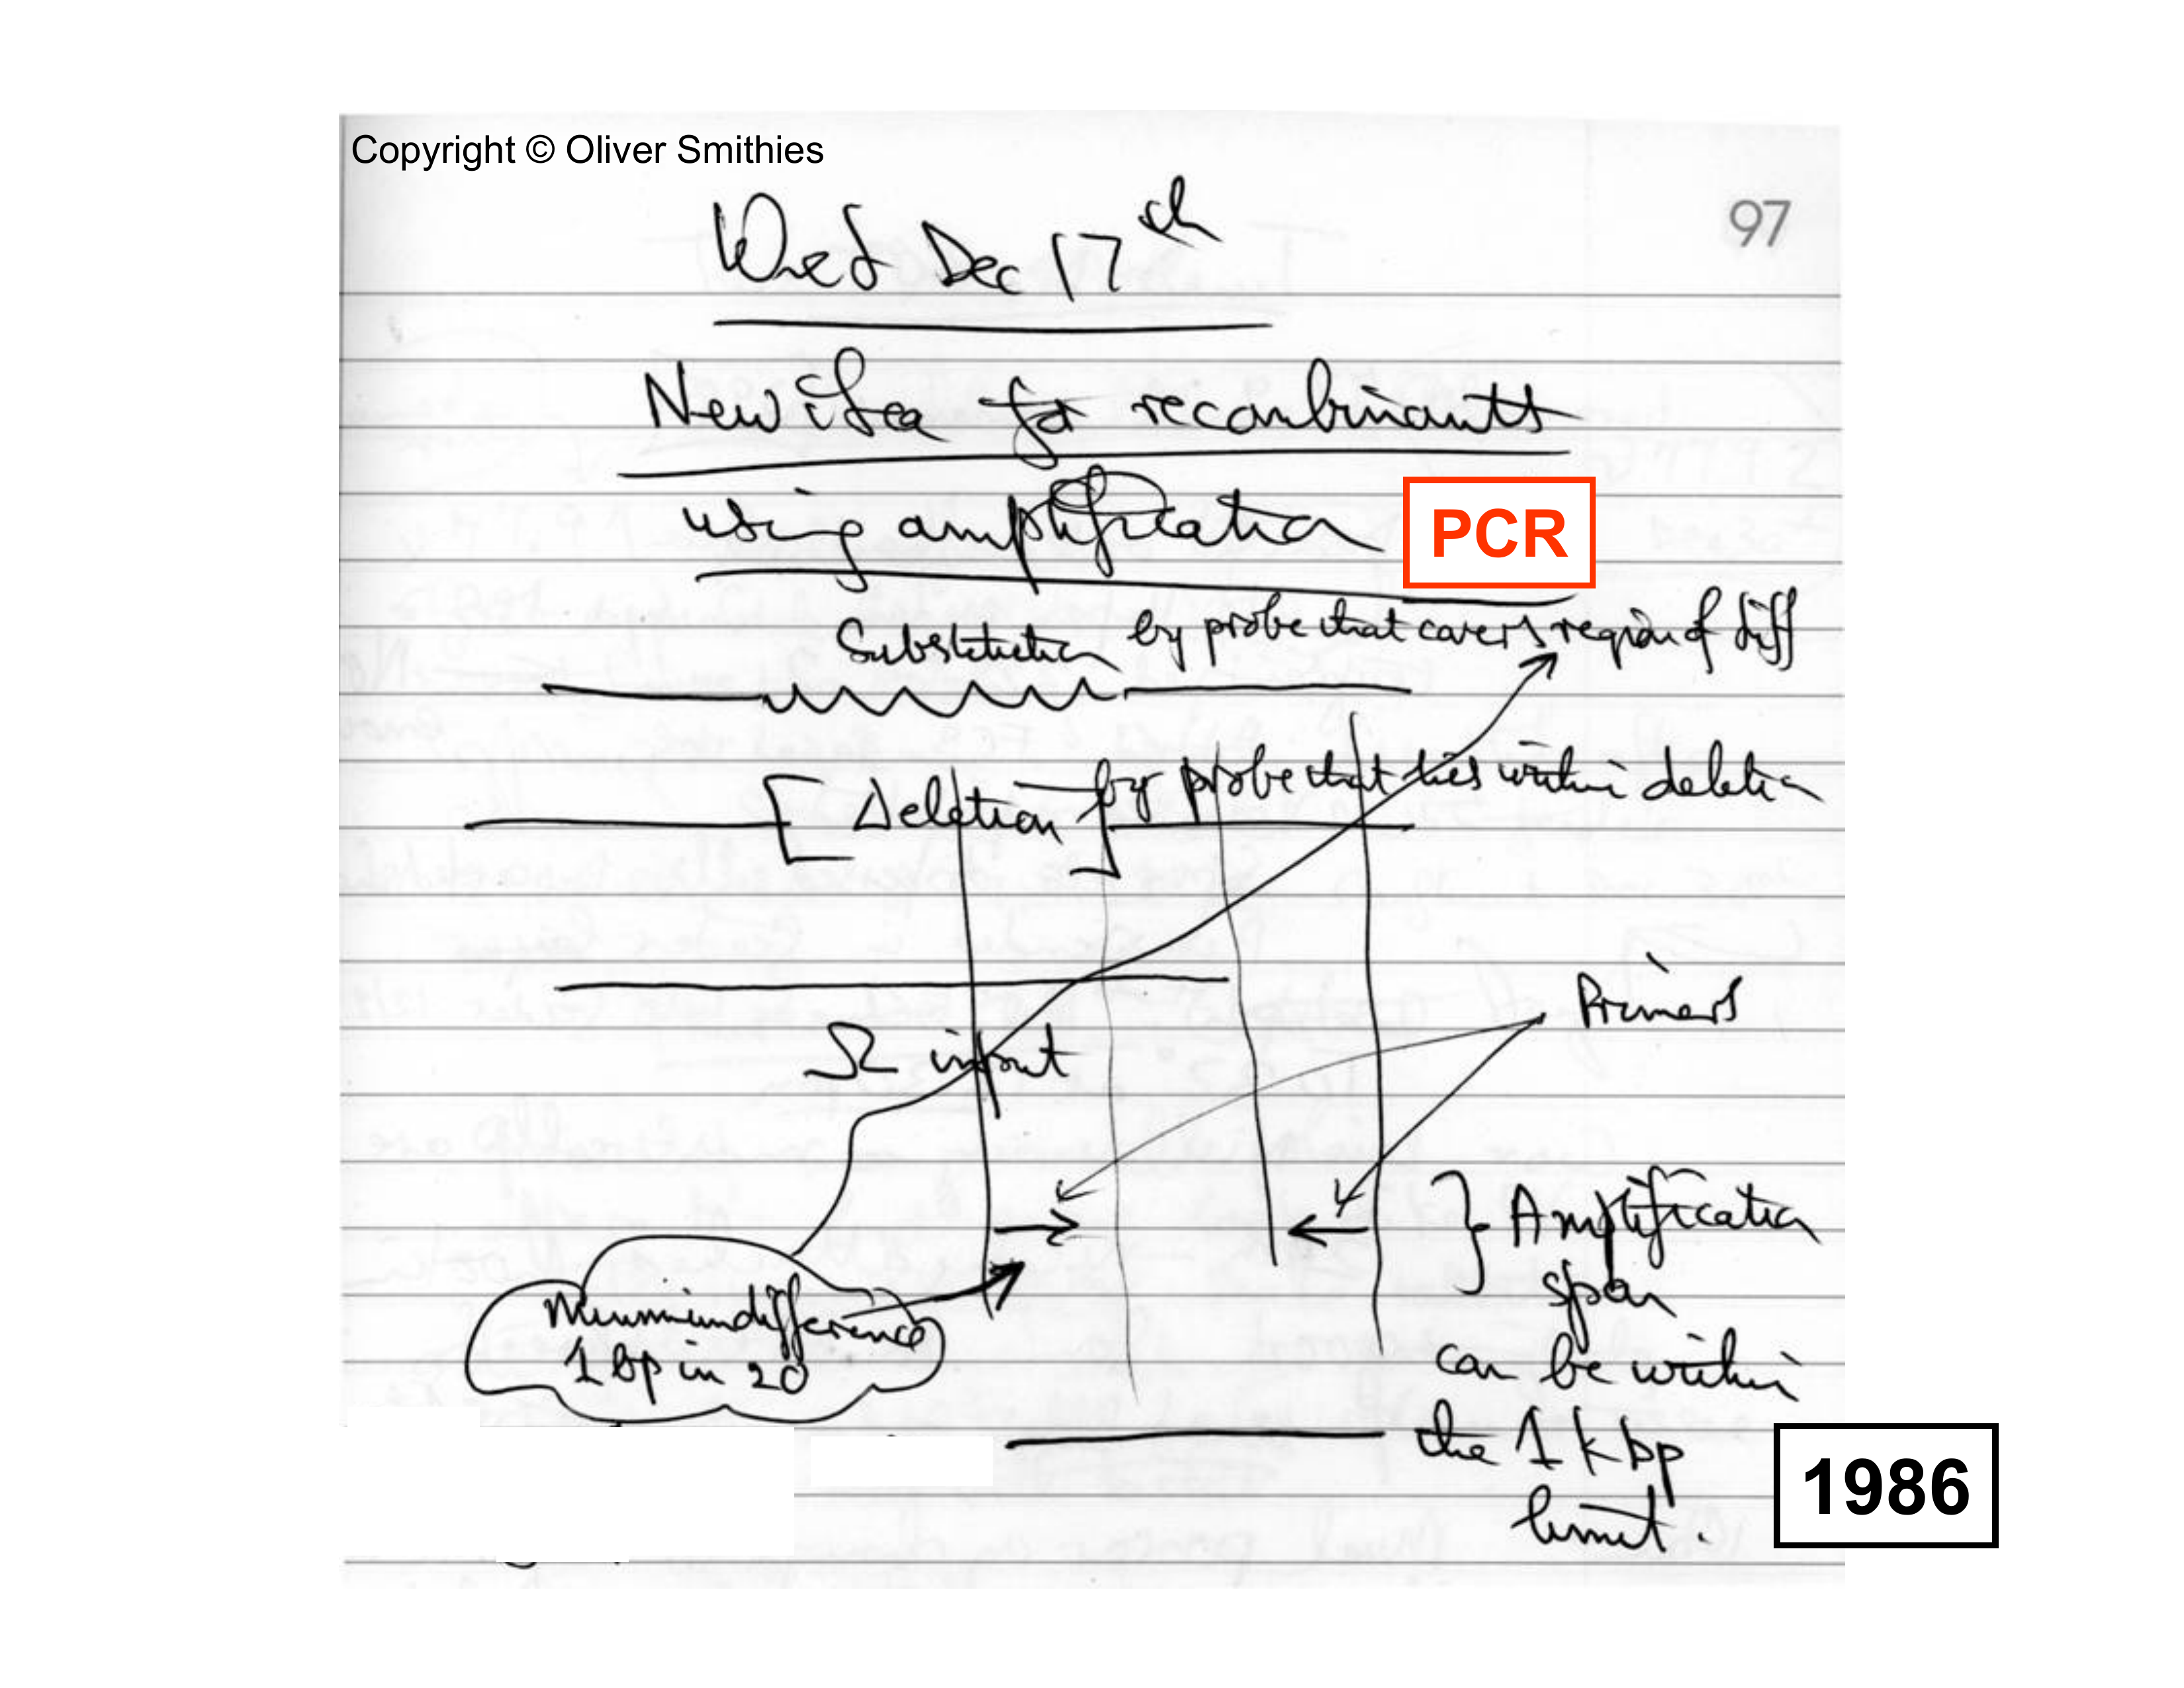 Copyright © Oliver Smithies
97
Wed Dec 17th
New idea for recombinants
using amplification
PCR
Substitution by probe that covers region of diff
[ Deletion ] by probe that lies within deletion
Ω input
Primers
} Amplification
span
can be within
the 1 kbp
limit.
Minimum difference
1 bp in 20
1986